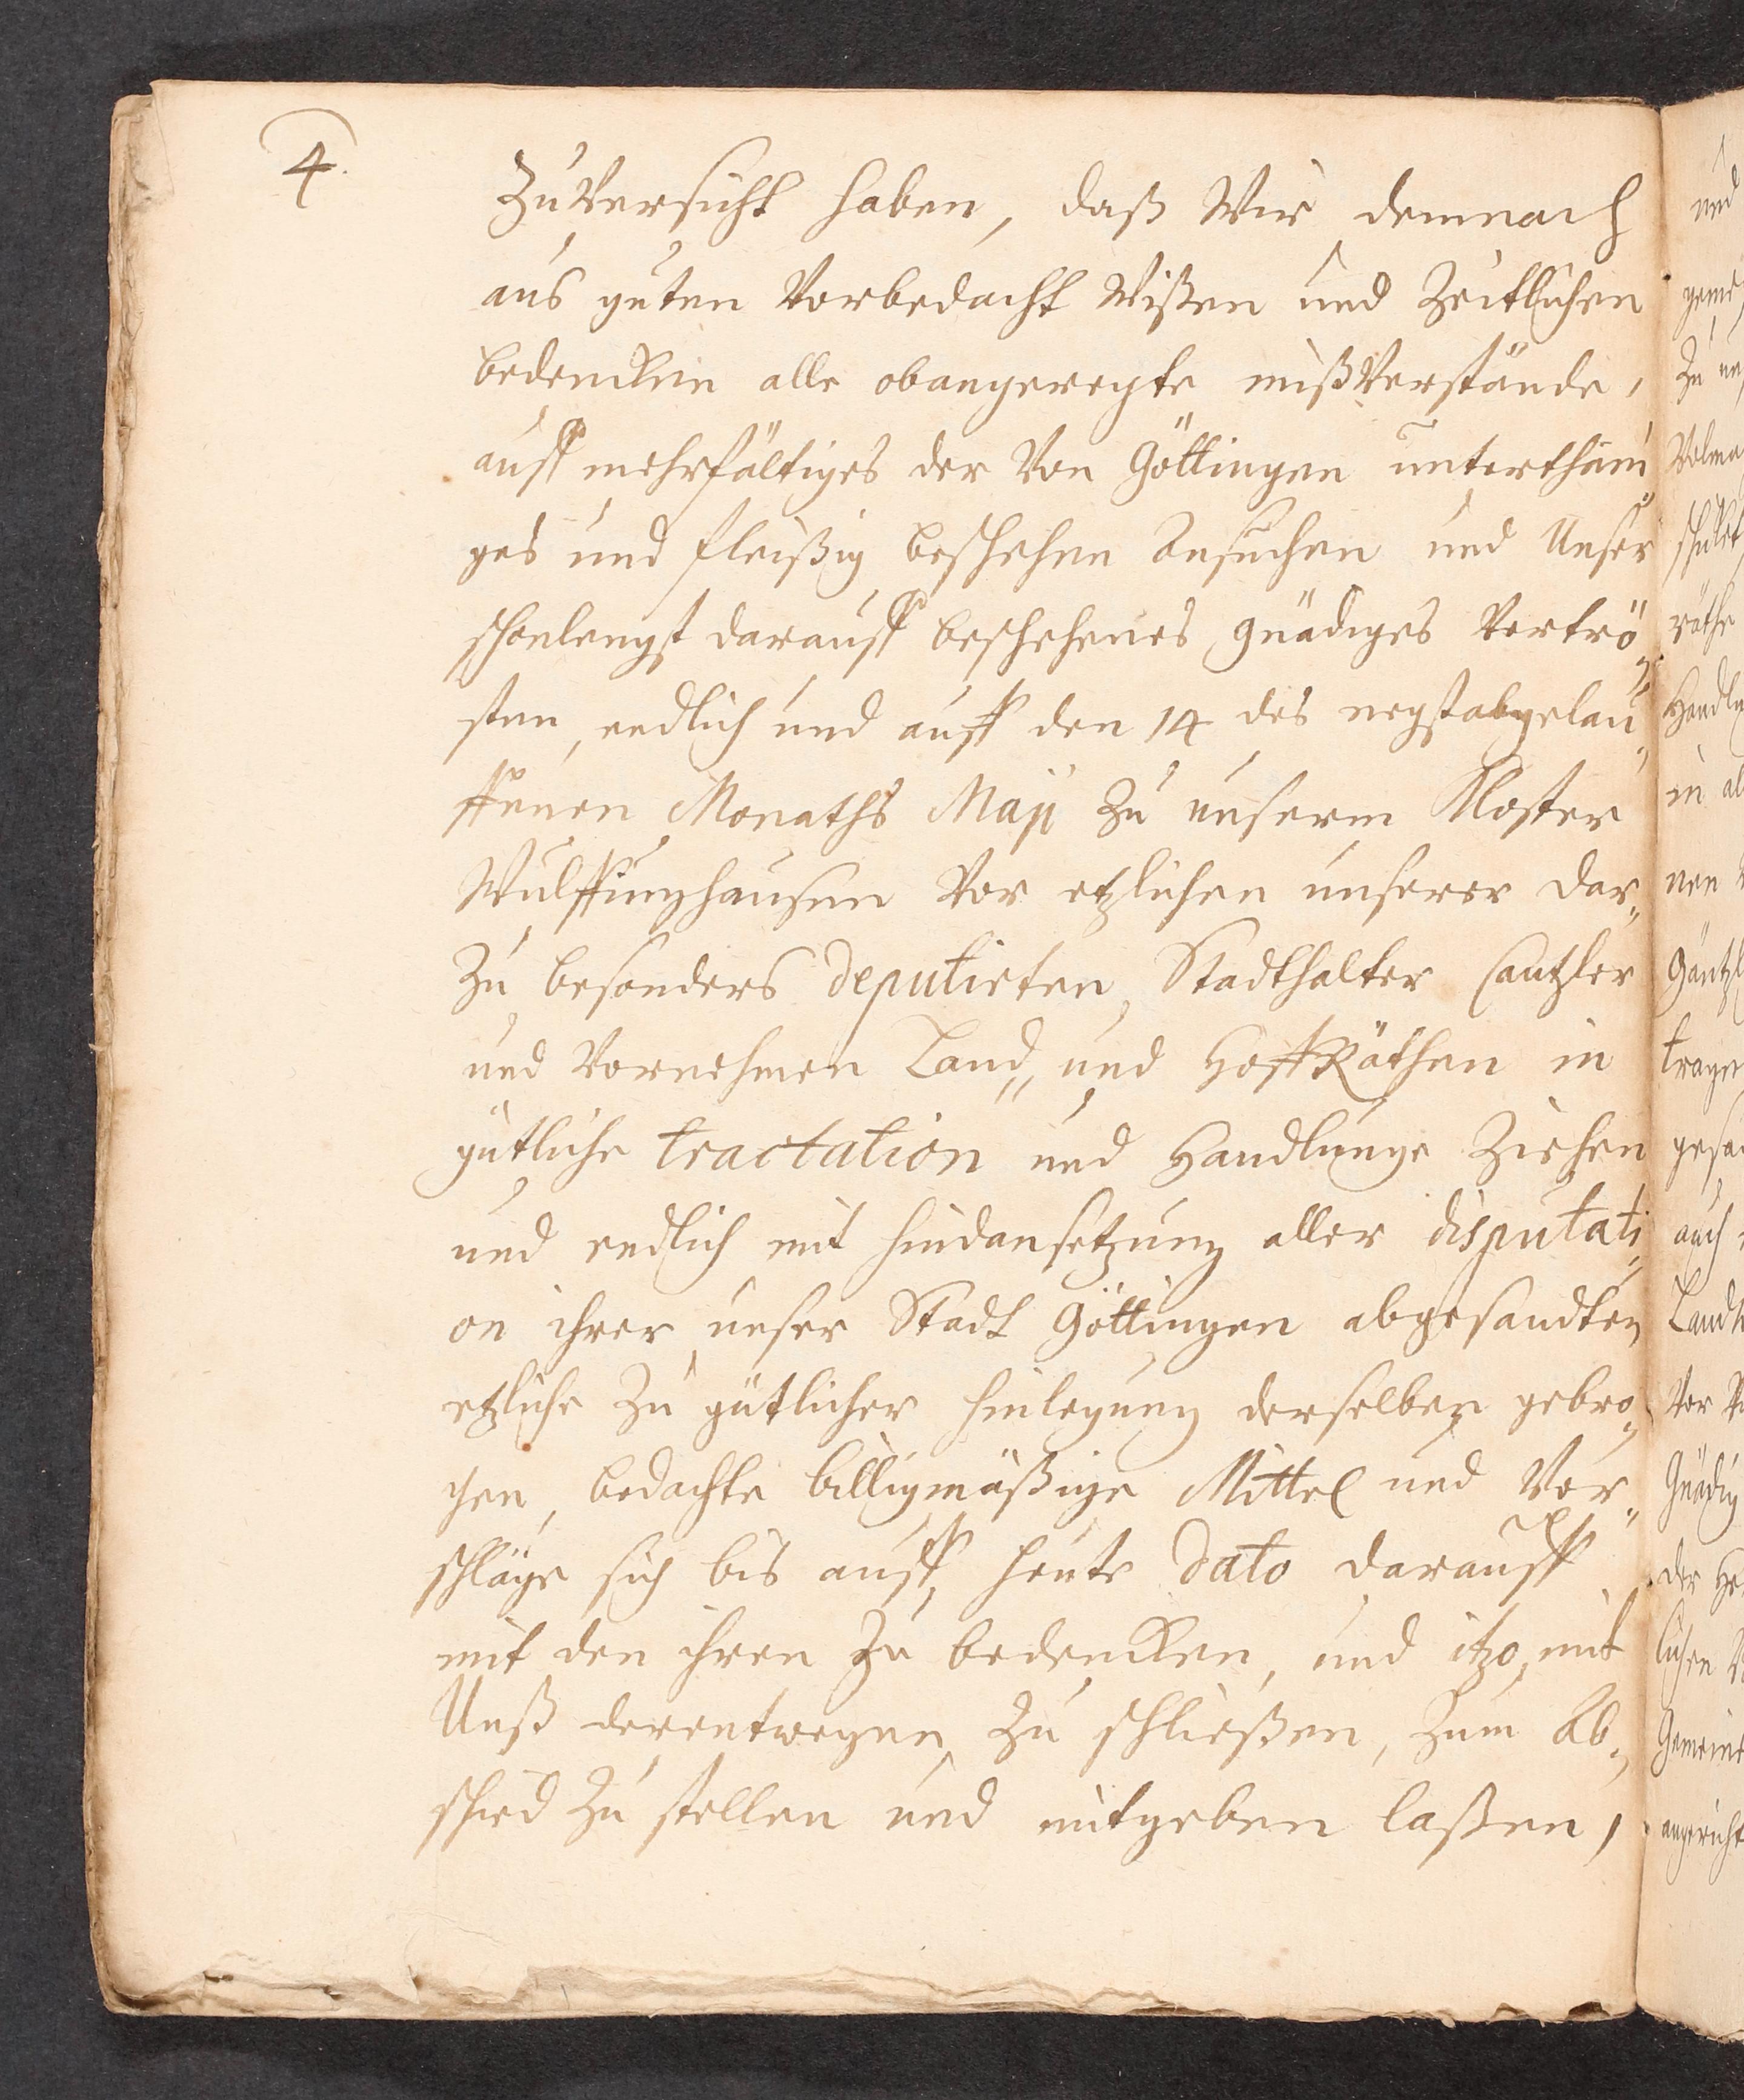 4.
ZuVersicht haben, daß Wir demnach
aus guten Vorbedacht Wißen und Zeitlichen
bedencken alle obangeregte mißVerstände,
auff mehrfältiges der Von Göttingen unterthäni„
ges und fleißig beschehen Ansuchen und Unser
schonlengst darauff beschehenes gnädiges Vertrö„
sten, endlich und auff den 14 des negstabgelau„
ffenen Monaths Maji Zu unserm Kloster
Wulffinghausen Vor etzlichen unserer dar„
Zu besonders deputirten Stadthalter Cantzler
und Vornehmen Land„ und HoffRäthen in
gütliche tractation und Handlunge Ziehen
und endlich mit hindansetzung aller disputati„
on ihrer unser Stadt Göttingen abgesandten
etzliche Zu gütlicher hinlegung derselben gebro„
chen, bedachte billigmäßige Mittel und Vor„
schläge sich bis auff heute dato darauff
mit den ihren Zu bedencken, und itzo mit
Unß derentwegen Zu schließen, Zum Ab„
schied Zu stellen und mitgeben laßen,
und
Zu
räthe
in
nen
auch
Vor
Gnädig
der
lichen